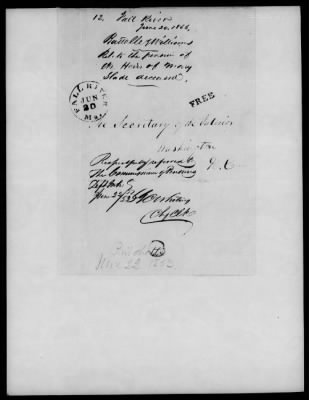 12. Fall River
June 20, 1853.
Battelle & Williams
Rel. to the pension of
the Heirs of Mary
Slade deceased.
FALL RIVER
JUN
20
Mas.
FREE
The Secretary of the Interior
Washington
D.C.
Respectfully referred to
the Commissioner of Pensions
Dept. Int.
June 22/53
Ch. Clk
June 22 1853